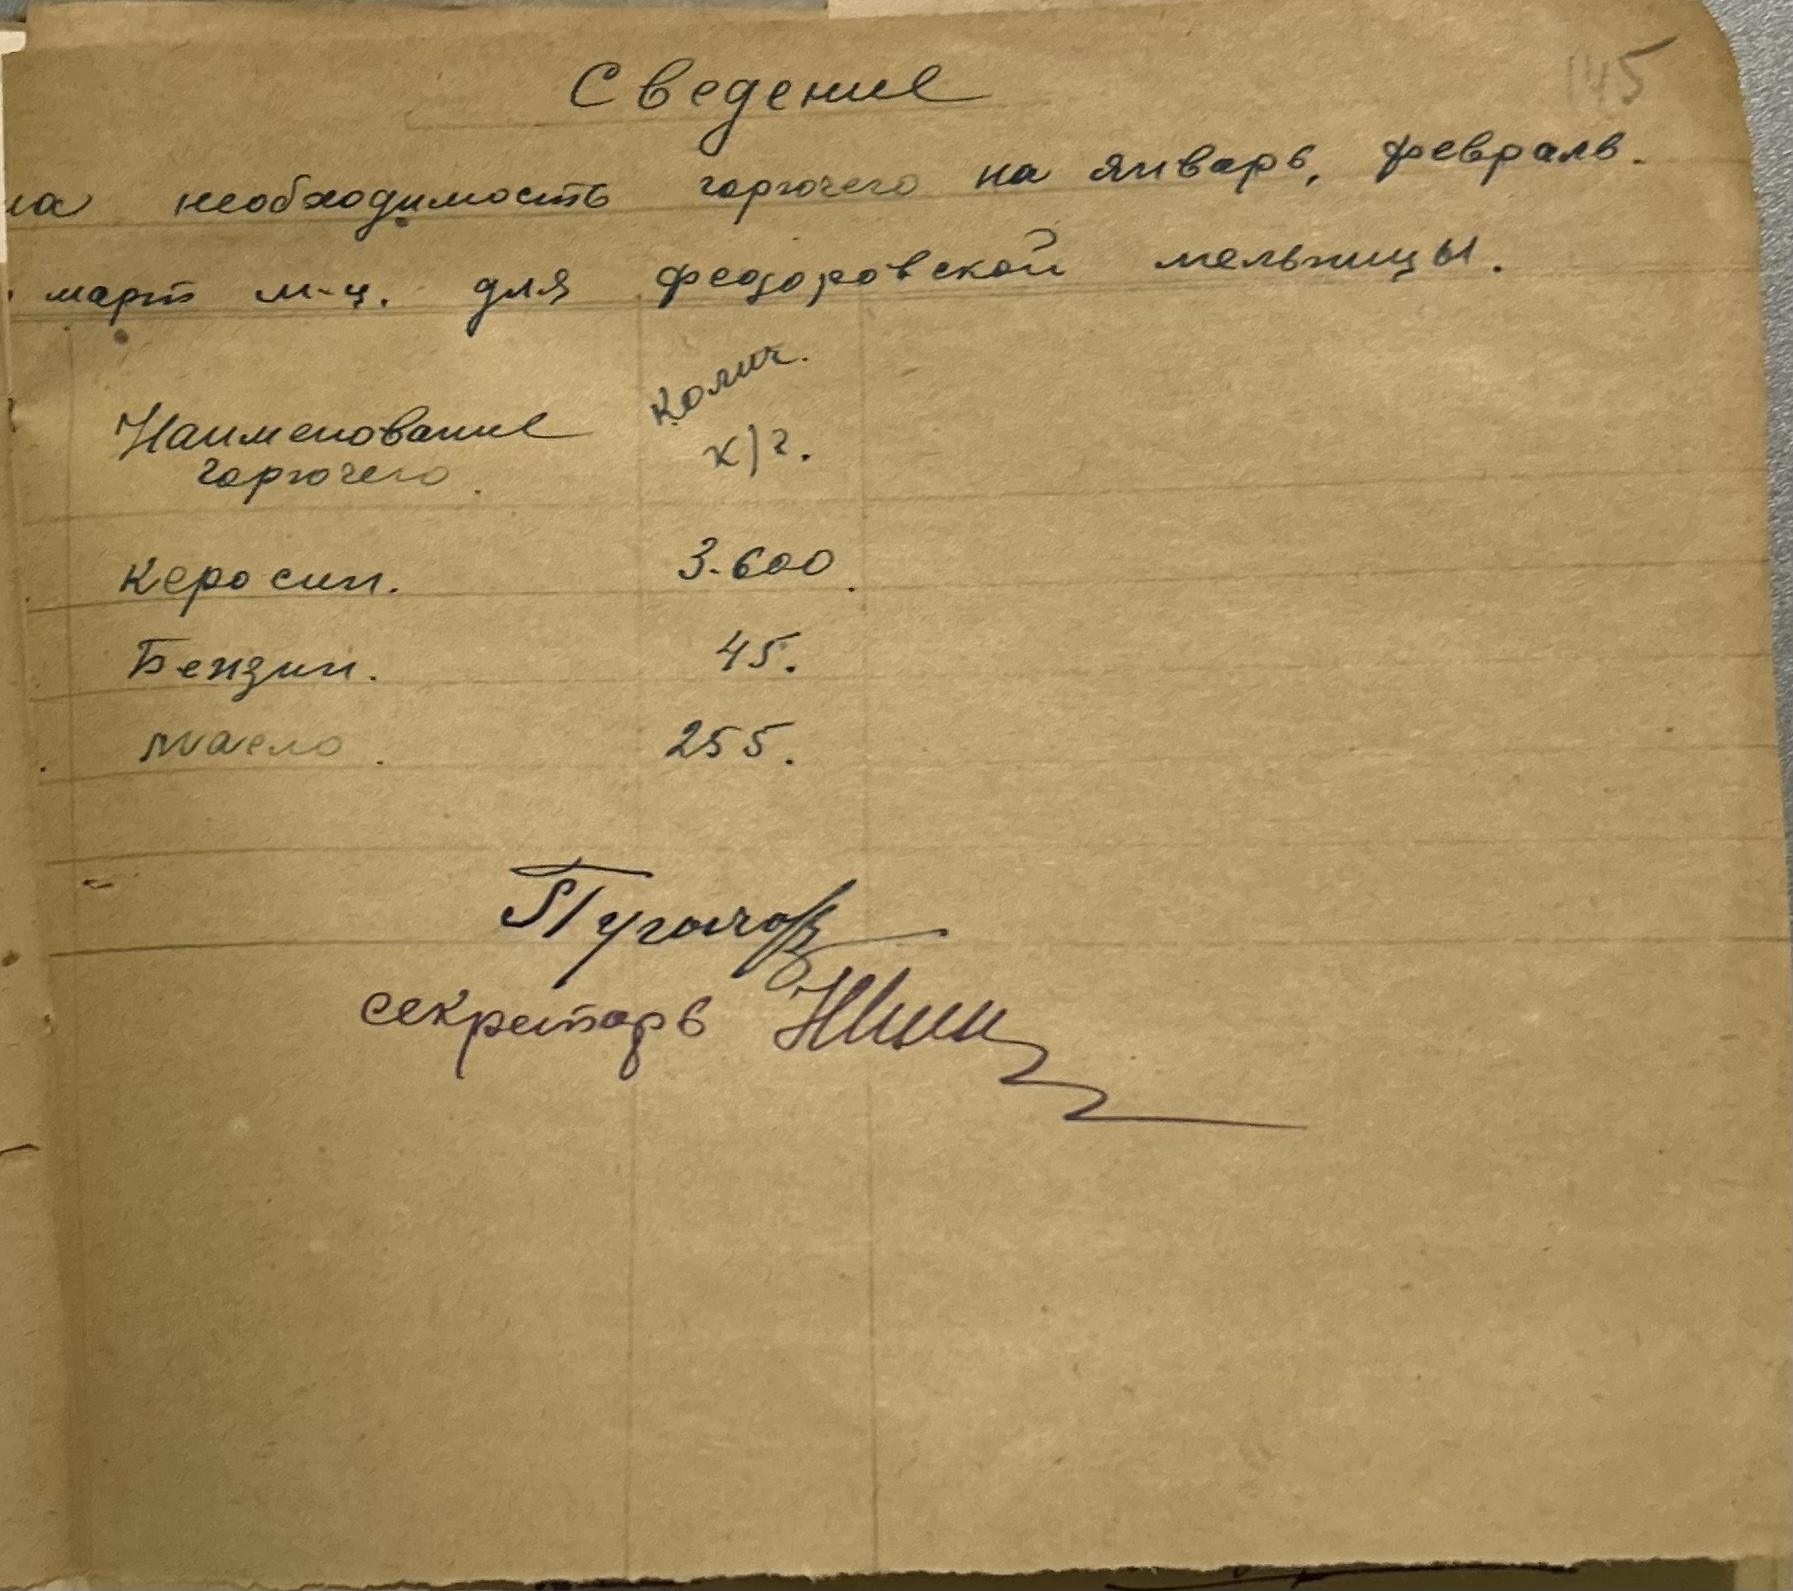 145
Сведение
на необходимость горючего на январь, февраль.
март м-ц. для федоровской мельницы.
Колич.
Наименование к/г.
горючего.
Керосин. 3.600.
Бензин. 45.
масло. 255.
Пугачов
секретарь